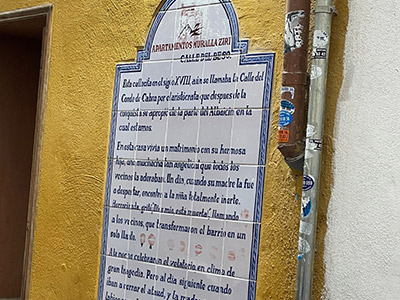 APARTAMENTOS MURALLA ZIRI
CALLE DEL BESO
Esta calle sita en el siglo XVIII, aún se llamaba la Calle del
Conde de Cabra por el aristócrata que despues de la
conquista se apropio de la parte del Albaicín en la
cual estamos.
En esta casa vivía un matrimonio con su hermosa
hija, una muchacha tan angelical que todos los
vecinos la adoraban. Un día, cuando su madre la fue
a despertar, encontro a la niña totalmente inerte.
gritó muerta! llamando
a los vecinos, que transformaron el barrio en un
solo llanto.
A la noche se celebraron el velatorio en clima de
gran tragedia. Pero al día siguiente cuando
iban a cerrar el ataud, y la madre